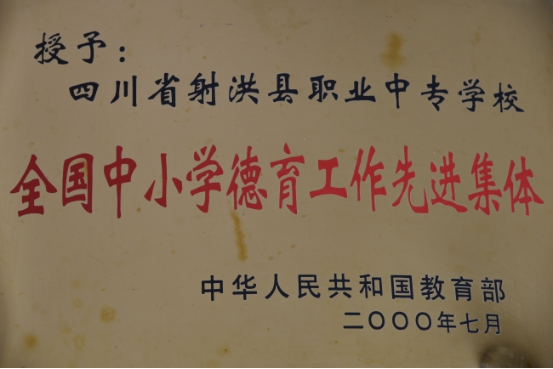 授予：
四川省射洪县职业中专学校
全国中小学德育工作先进集体
中华人民共和国教育部
二〇〇〇年七月